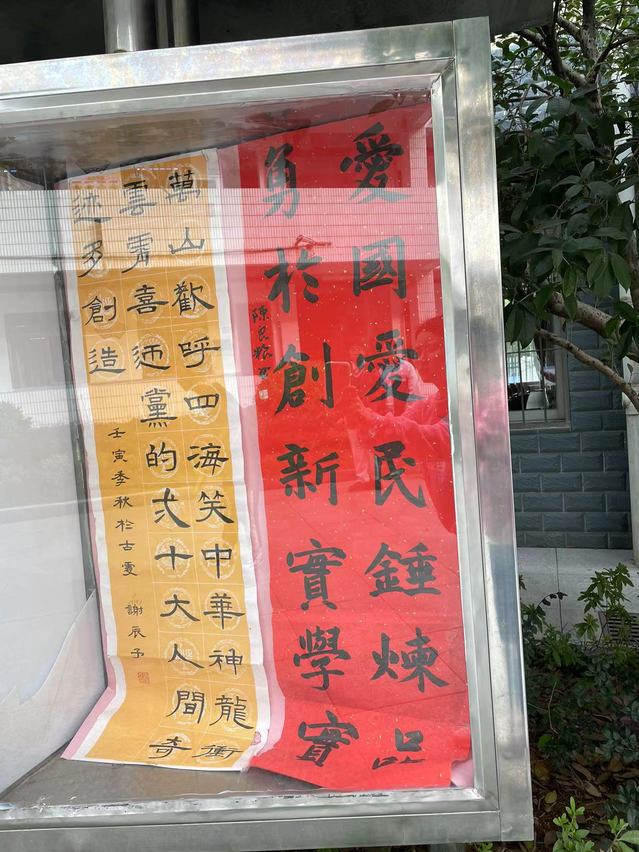 愛國愛民錘煉品
勇於創新實學實
萬山歡呼四海笑中華神龍衝
雲霄喜迎黨的弍十大人間奇
迹多創造
壬寅季秋於古 謝辰予